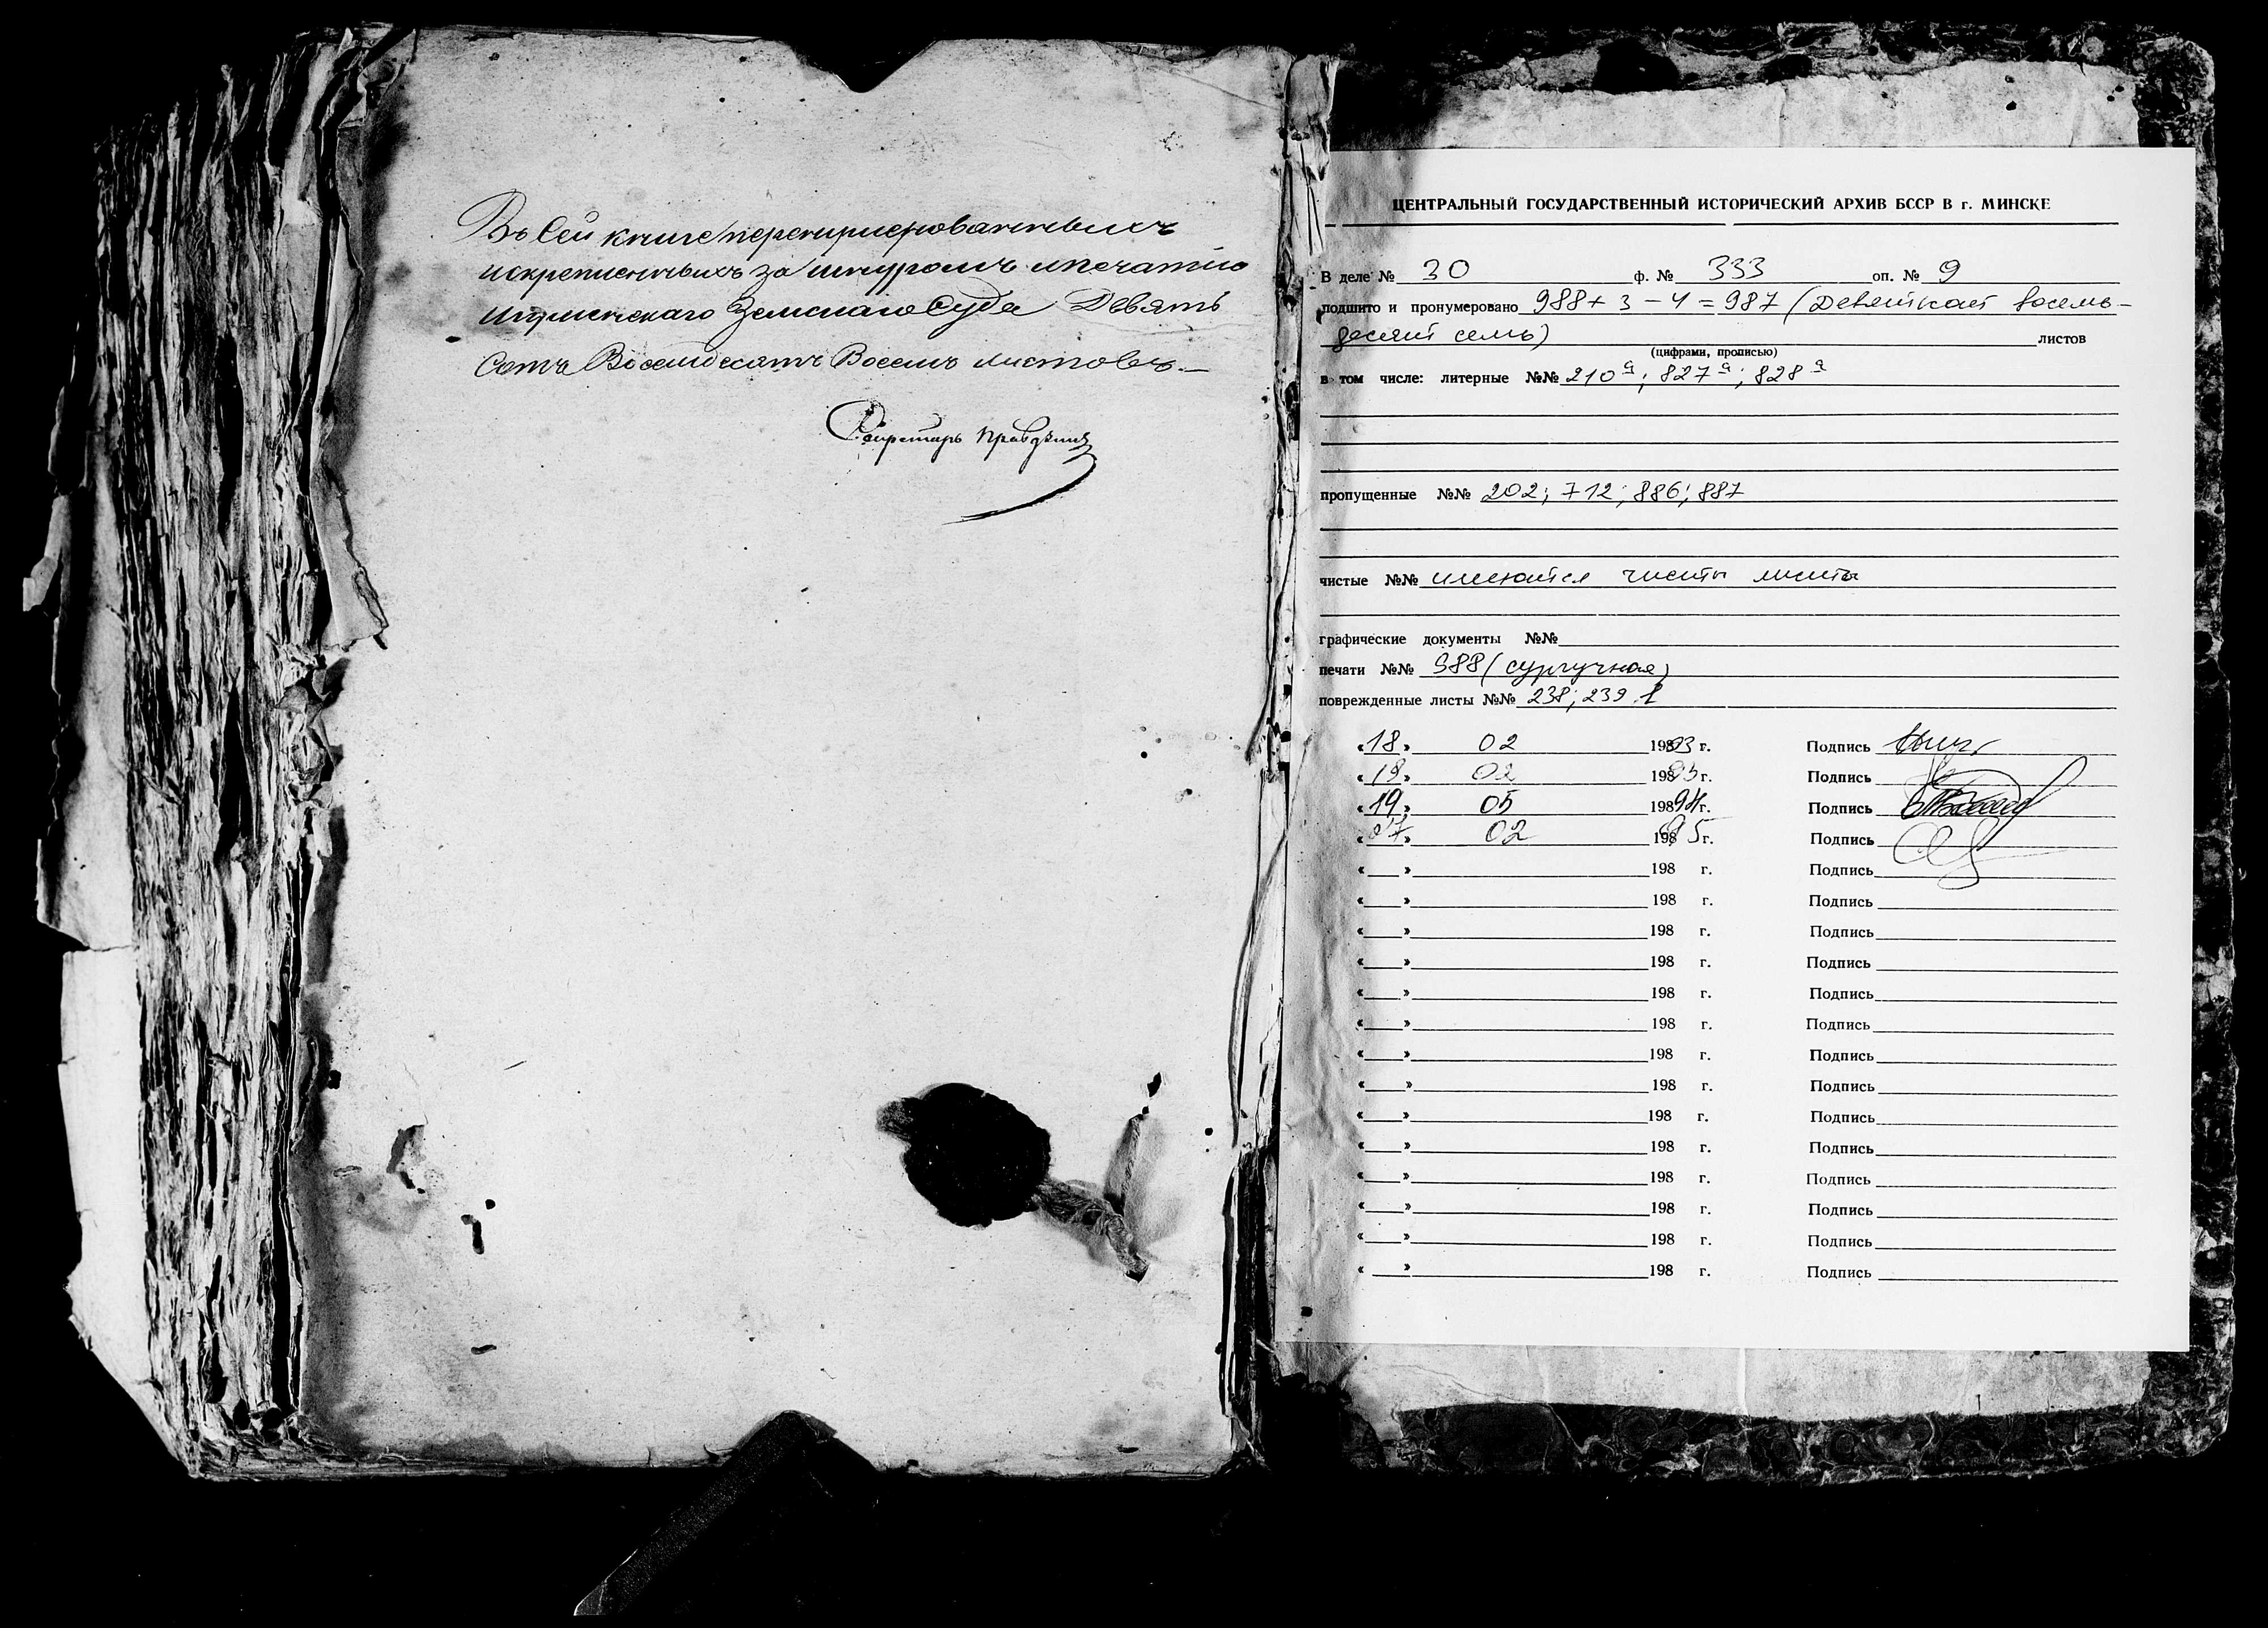 Въ сей книге перенумерованныхъ
искрепленныхъ за шнуромъ ипечатью
Игуменскаго Земскаго Суда Девять
Сотъ Восемдесятъ Восемъ листовъ.—
Секретарь
ЦЕНТРАЛЬНЫЙ ГОСУДАРСТВЕННЫЙ ИСТОРИЧЕСКИЙ АРХИВ БССР В г. МИНСКЕ
В деле № 30 ф. № 333 оп. № 9
подшито и пронумеровано 988 + 3 – 4 = 987 (Девятьсот восемь-
десят семь) листов
(цифрами, прописью)
в том числе: литерные №№ 210а; 827а; 828а
пропущенные №№ 202; 712; 886; 887
чистые №№ имеются чисты листы
графические документы №№
печати №№ 988 (сургучная)
поврежденные листы №№ 238; 239
«18» 02 1983 г. Подпись
«19» 02 1983 г. Подпись
«19» 05 19894 г. Подпись
«07» 02 1985 г. Подпись
« » 198 г. Подпись
« » 198 г. Подпись
« » 198 г. Подпись
« » 198 г. Подпись
« » 198 г. Подпись
« » 198 г. Подпись
« » 198 г. Подпись
« » 198 г. Подпись
« » 198 г. Подпись
« » 198 г. Подпись
« » 198 г. Подпись
« » 198 г. Подпись
« » 198 г. Подпись
« » 198 г. Подпись